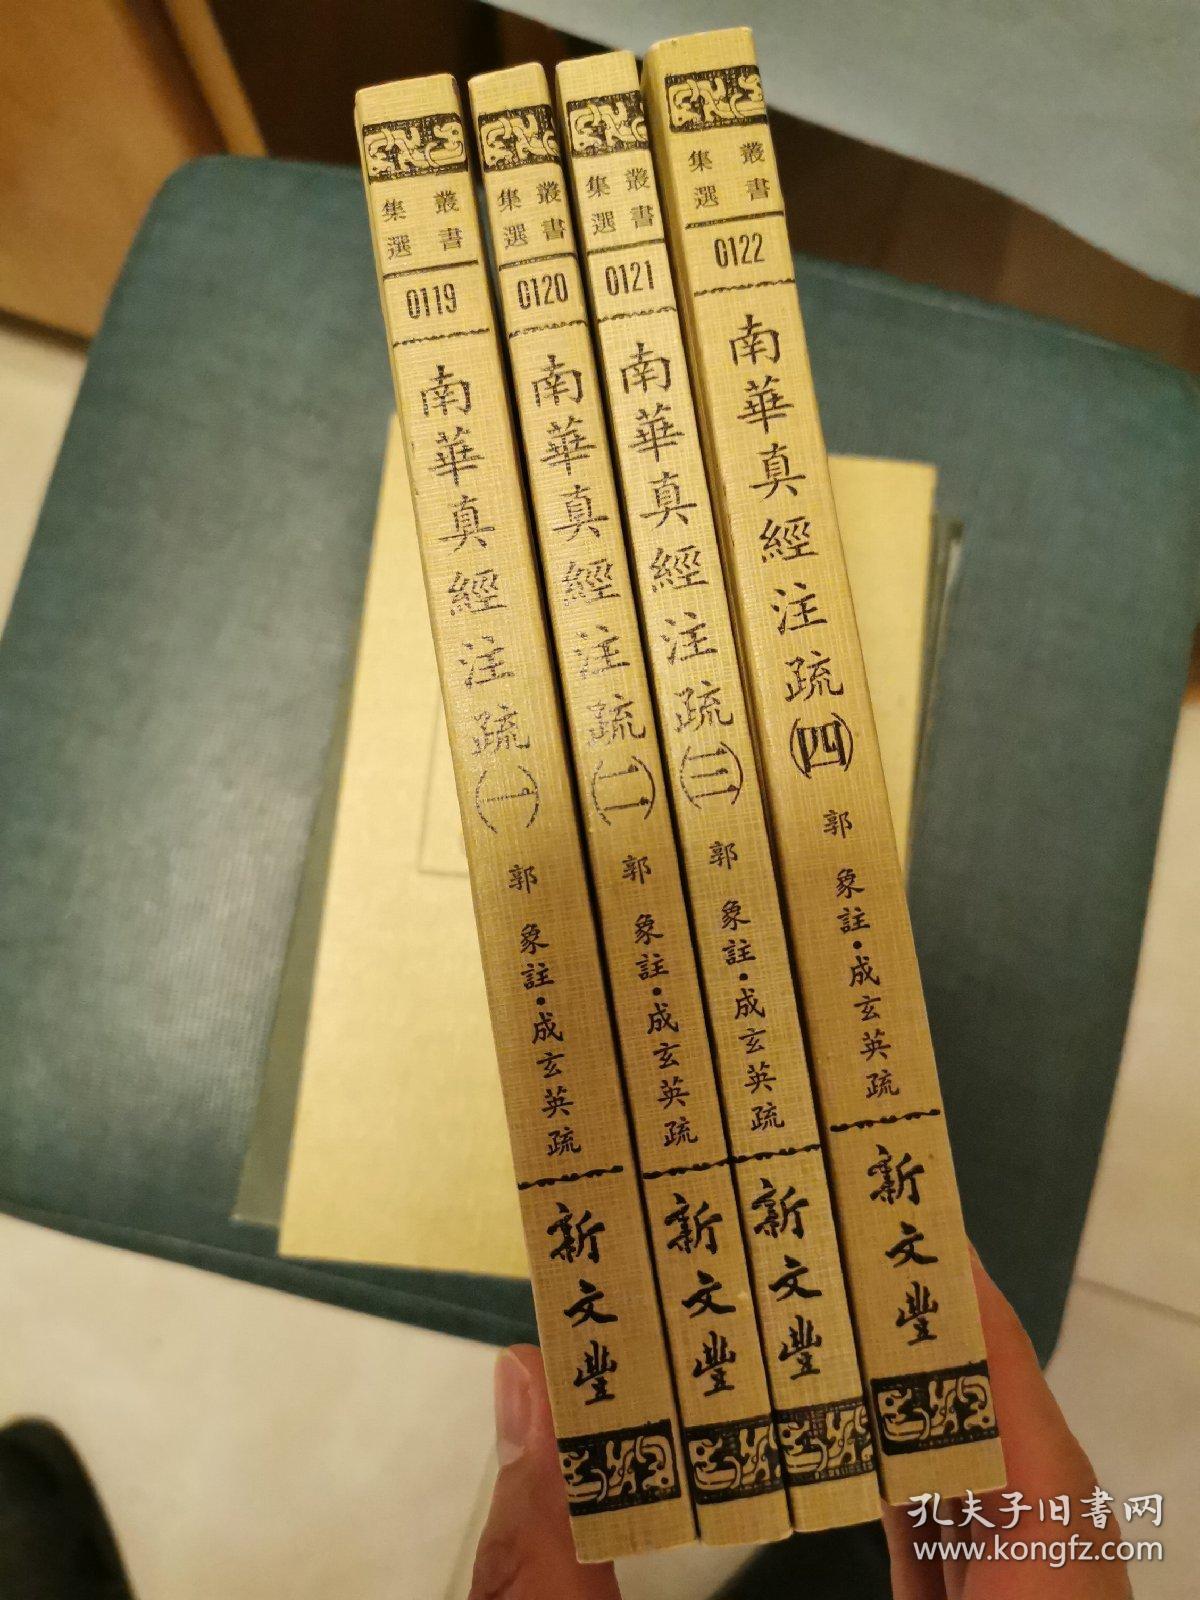 叢書
集選
0119
南華真經注疏(一)
郭象註・成玄英疏
新文豐
叢書
集選
0120
南華真經注疏(二)
郭象註・成玄英疏
新文豐
叢書
集選
0121
南華真經注疏(三)
郭象註・成玄英疏
新文豐
叢書
集選
0122
南華真經注疏(四)
郭象註・成玄英疏
新文豐
孔夫子旧书网
www.kongfz.com